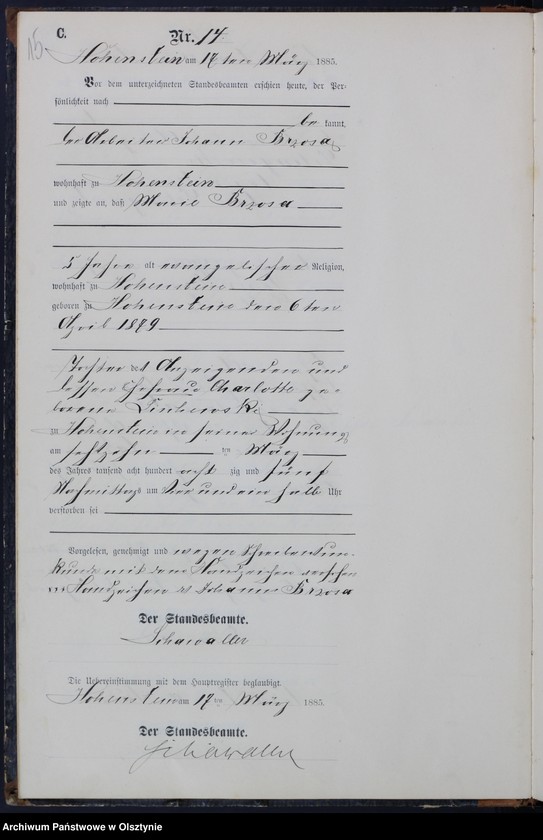 15.
C.
Nr. 14
Hohenstein am 17ten März 1885.
Vor dem unterzeichneten Standesbeamten erschien heute, der Per-
sönlichkeit nach
be kannt,
der Arbeiter Johann Brzosa
wohnhaft zu Hohenstein
und zeigte an, daß Marie Brzosa
5 Jahre alt evangelischer Religion,
wohnhaft zu Hohenstein
geboren zu Hohenstein den 6ten
April 1879
Tochter des Anzeigenden und
dessen Ehefrau Charlotte ge-
borene
zu Hohenstein in seiner Wohnung
am sechzehn ten März
des Jahres tausend acht hundert acht zig und fünf
Nachmittags um vier und ein halb Uhr
verstorben sei
Vorgelesen, genehmigt und wegen Schreibensun-
kunde mit dem Handzeichen versehen
xxx Handzeichen des Johann Brzosa
Der Standesbeamte.
Schawaller
Die Uebereinstimmung mit dem Hauptregister beglaubigt.
Hohenstein am 17 ten März 1885.
Der Standesbeamte.
Schawaller
Archiwum Państwowe w Olsztynie